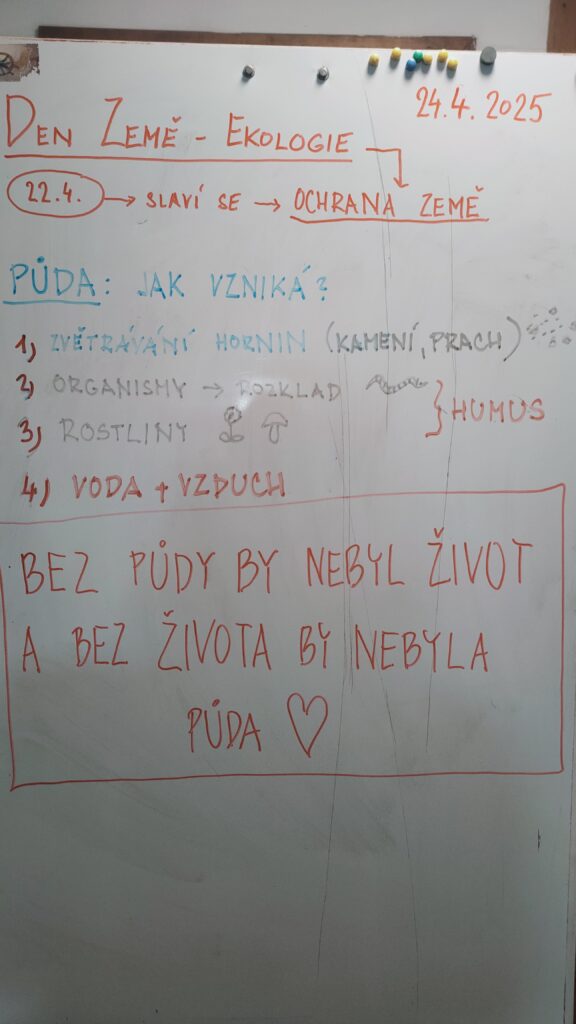 24.4. 2025
DEN ZEMĚ - EKOLOGIE
22.4. → SLAVÍ SE → OCHRANA ZEMĚ
PŮDA: JAK VZNIKÁ?
1) ZVĚTRÁVÁNÍ HORNIN (KAMENÍ, PRACH)
2) ORGANISMY → ROZKLAD
3) ROSTLINY
} HUMUS
4) VODA + VZDUCH
BEZ PŮDY BY NEBYL ŽIVOT
A BEZ ŽIVOTA BY NEBYLA
PŮDA ♡